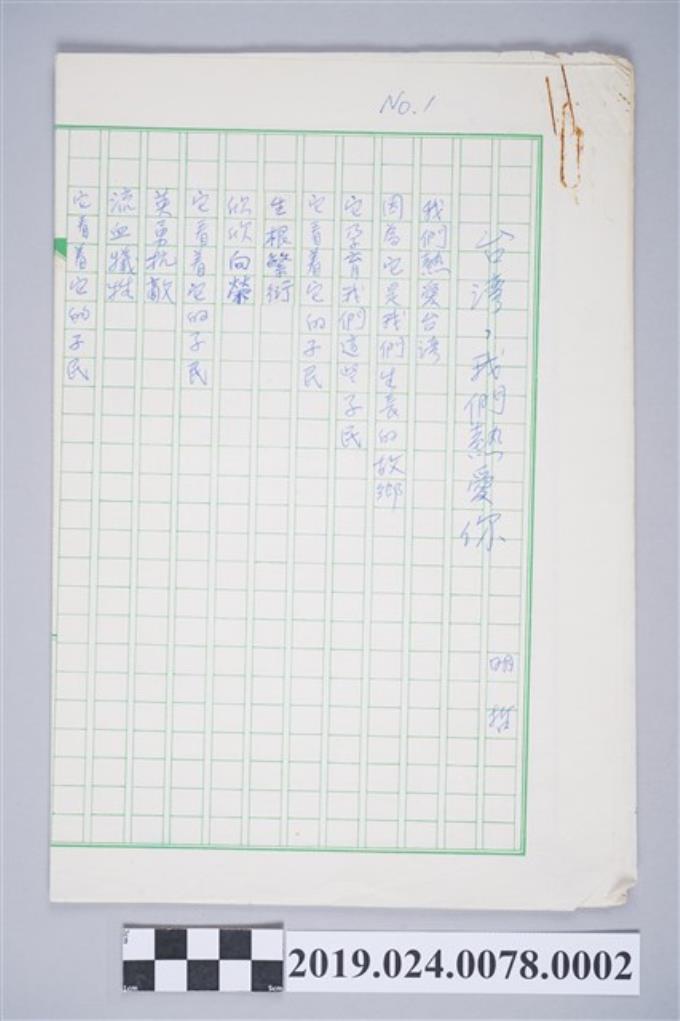 No.1
台湾，我們熱愛你
明哲
我們熱愛台湾
因為它是我們生長的故鄉
它孕育我們這些子民
它看着它的子民
生根繁衍
欣欣向榮
它看着它的子民
英勇抗敵
流血犧牲
它看着它的子民
2019.024.0078.0002